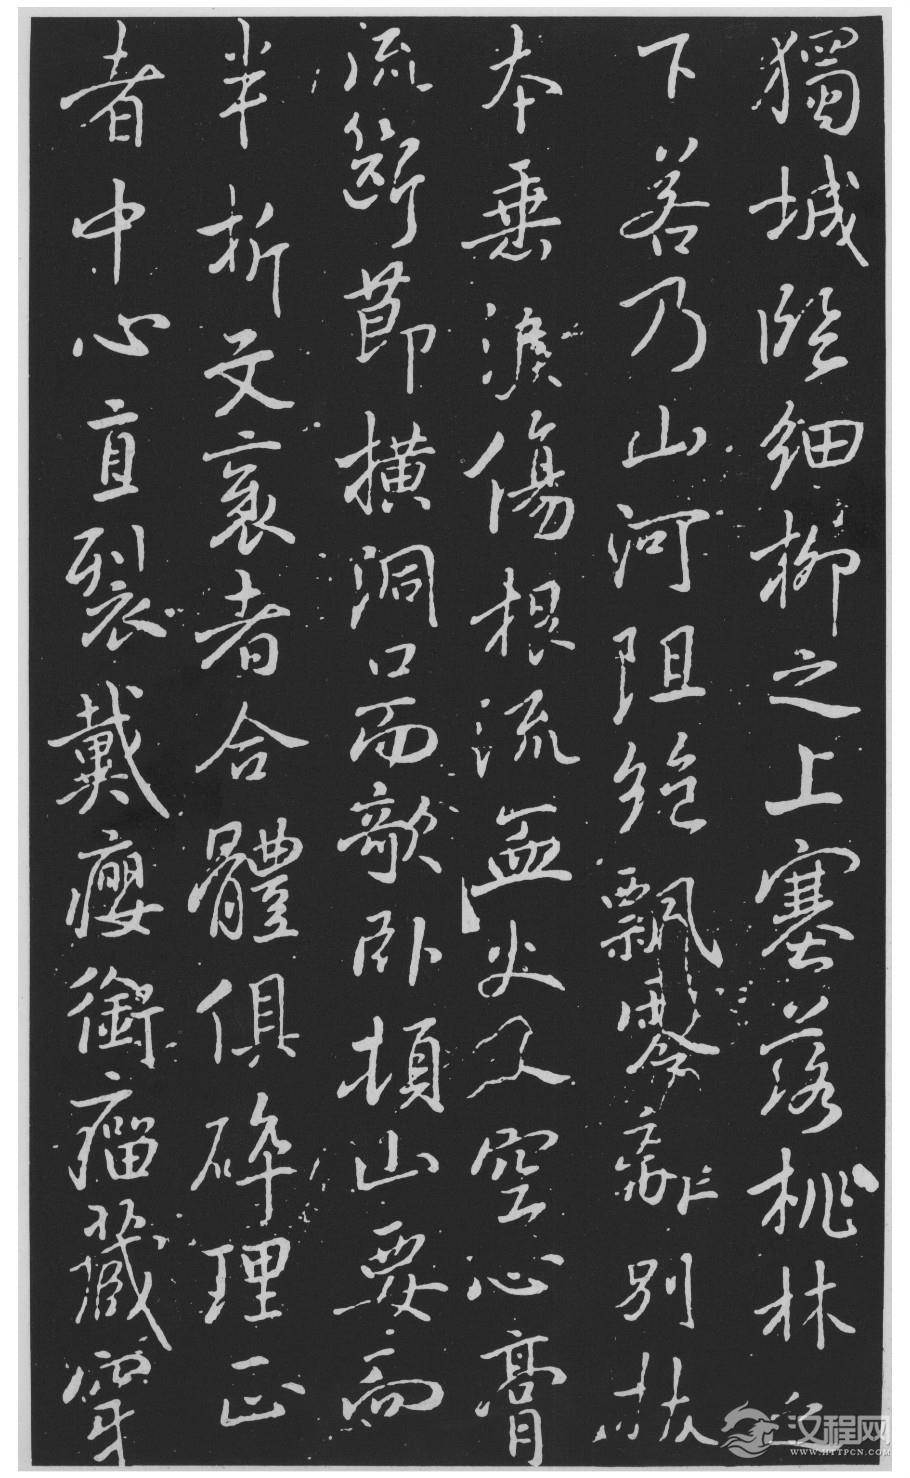 獨城臨細柳之上塞落桃林之
下若乃山河阻絕飄零離別拔
本垂淚傷根流血火入空心膏
流斷節橫洞口而欹臥頓山要而
半折文衺者合體俱碎理正
者中心直裂戴癭銜瘤藏穿
汉程网
WWW.HTTPCN.COM